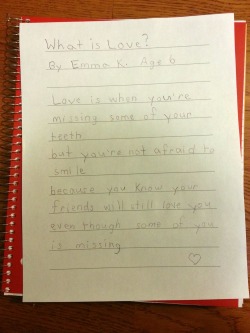 What is Love?
By Emma K. Age 6
Love is when you're
missing some of your
teeth.
but you're not afraid to
smile
because you know your
friends will still love you
even though some of you
is missing